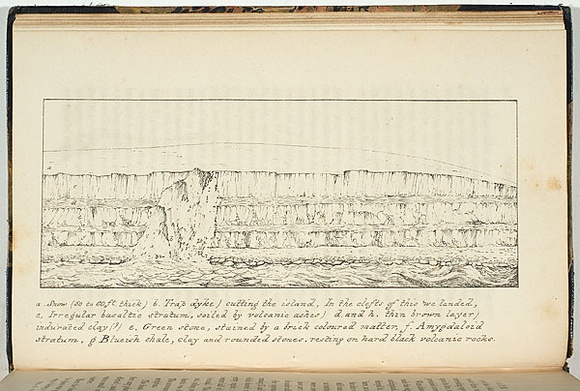 a Snow (50 to 60 ft. thick) b. Trap dyke) cutting the island, In the clefts of this we landed,
c. Irregular basaltic stratum, soiled by volcanic ashes) d and h. thin brown layer)
indurated clay(?) e, Green stone, stained by a brick coloured matter, f. Amygdaloid
stratum, g Blueish shale, clay and rounded stones. resting on hard black volcanic rocks.